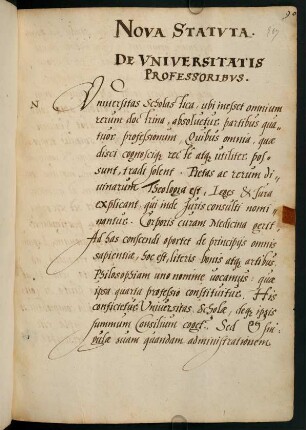 90
NOVA STATVTA.
DE VNIVERSITATIS
PROFESSORIBVS.
N
Vniuersitas Scholastica, ubi inesset omnium
rerum doctrina, absoluetur partibus qua-
tuor professionum, Quibus omnia, quæ
disci cognosciq; rectè atq; utiliter pos-
sunt, tradi solent. Pietas ac rerum di-
uinarum Theologia est, Leges & Iura
explicant, qui inde Juris consulti nomi-
nantur. Corporis curam Medicina gerit
Ad has conscendi oportet de principijs omnis
sapientiæ, hoc est, literis bonis atq; artibus
Philosophiam uno nomine uocamus: quæ
ipsa quarta professio constituitur. His
conficietur Vniuersitas Scholæ, deq; ipsis
summum Consilium coget. Sed sin-
gulæ suam quandam administrationem